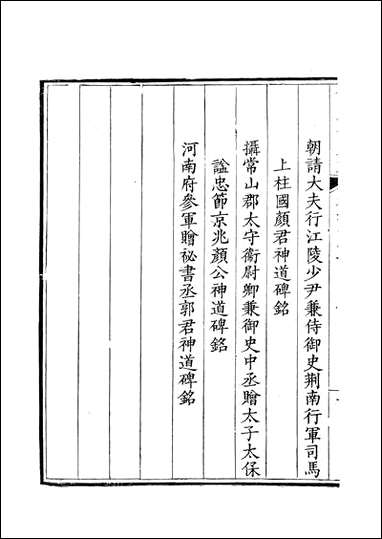 朝請大夫行江陵少尹兼侍御史荆南行軍司馬
上柱國顔君神道碑銘
攝常山郡太守衛尉卿兼御史中丞贈太子太保
諡忠節京兆顔公神道碑銘
河南府參軍贈祕書丞郭君神道碑銘